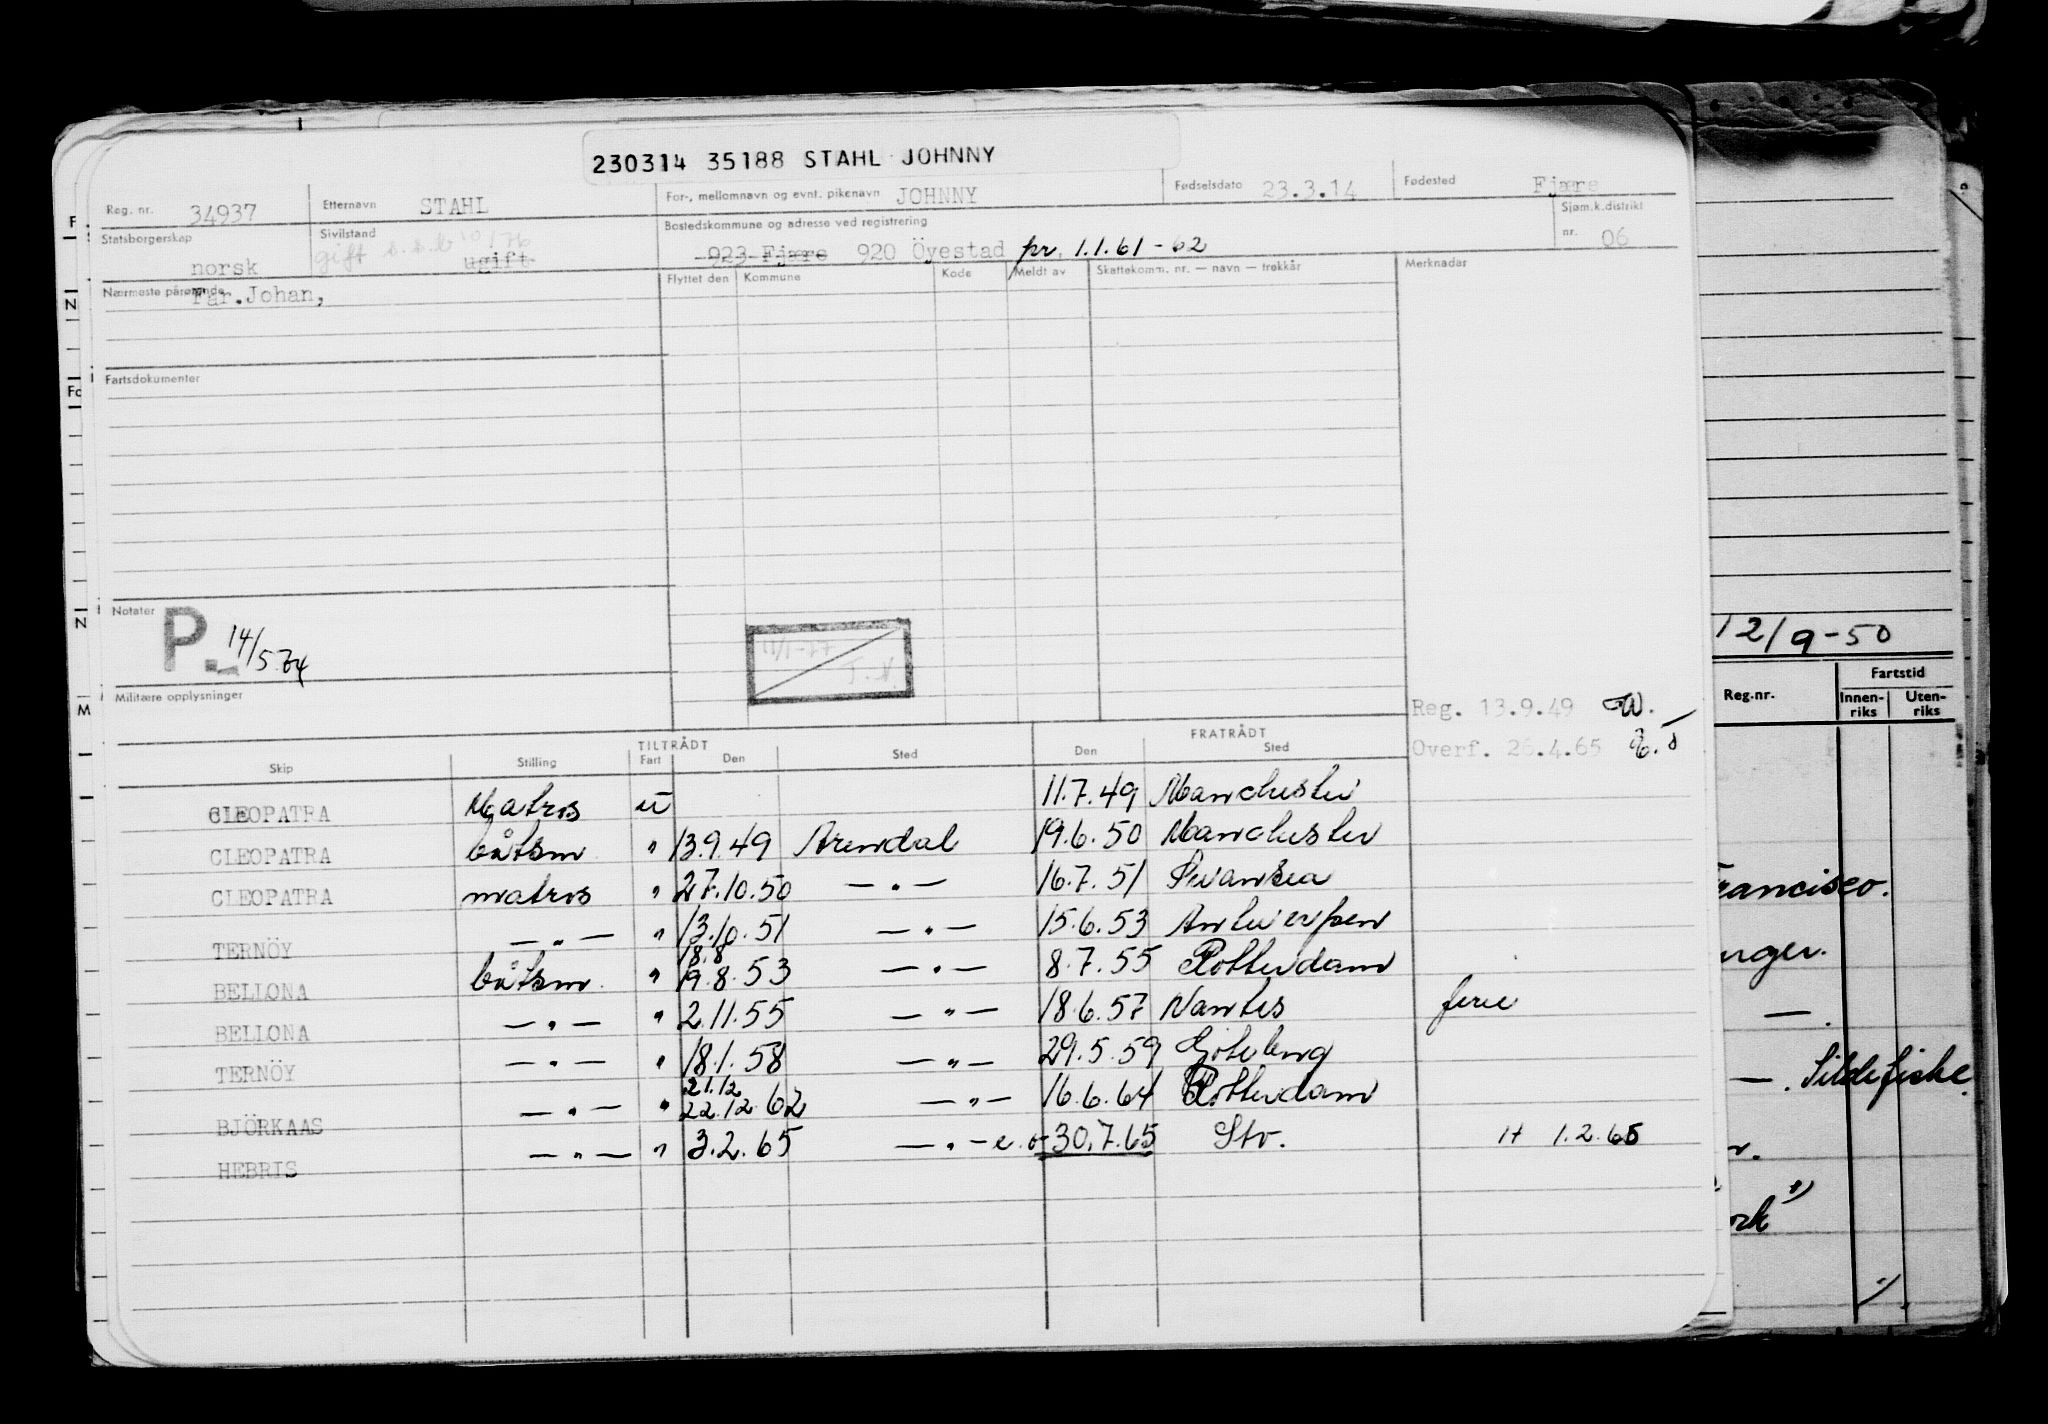 230314 35188 STAHL JOHNNY
Reg. nr. 34937 Etternavn STAHL For-, mellomnavn og evnt. pikenavn JOHNNY Fødselsdato 23.3.14 Fødested Fjære
Statsborgerskap norsk Sivilstand gift s.s.b 10/76 ugift Bostedskommune og adresse ved registrering 923 Fjære 920 Öyestad pr. 1.1.61-62 Sjøm.k.distrikt nr. 06
Nærmeste pårørende Far.Johan, Flyttet den Kommune Kode Meldt av Skattekomm. nr. — navn — trekkår Merknadar
Fartsdokumenter
Notater P. 14/5.74
Militære opplysninger
Reg. 13.9.49
Overf. 26.4.65
TILTRÅDT FRATRÅDT
Skip Stilling Fart Den Sted Den Sted
CLEOPATRA Matros u 11.7.49 Manchester
CLEOPATRA båtsm " 13.9.49 Arendal 19.6.50 Manchester
CLEOPATRA matros " 27.10.50 — " — 16.7.51 Swansea
TERNÖY — " — " 13.10.51 — " — 15.6.53 Antwerpen
18.8
BELLONA båtsm. " 19.8.53 — " — 8.7.55 Rotterdam
BELLONA — " — " 2.11.55 — " — 18.6.57 Nantes ferie
TERNÖY — " — " 18.1.58 — " — 29.5.59 Göteborg
21.12
BJÖRKAAS — " — " 22.12.62 — " — 16.6.64 Rotterdam
HEBRIS — " — " 3.2.65 — " — e.o 30.7.65 Stv. H 1.2.65
12/9-50
Reg.nr. Fartstid
Innen-riks Uten-riks
Francisco.
nger.
— .
— . Sildefiske.
ork"
F.
N
Fo
N
M